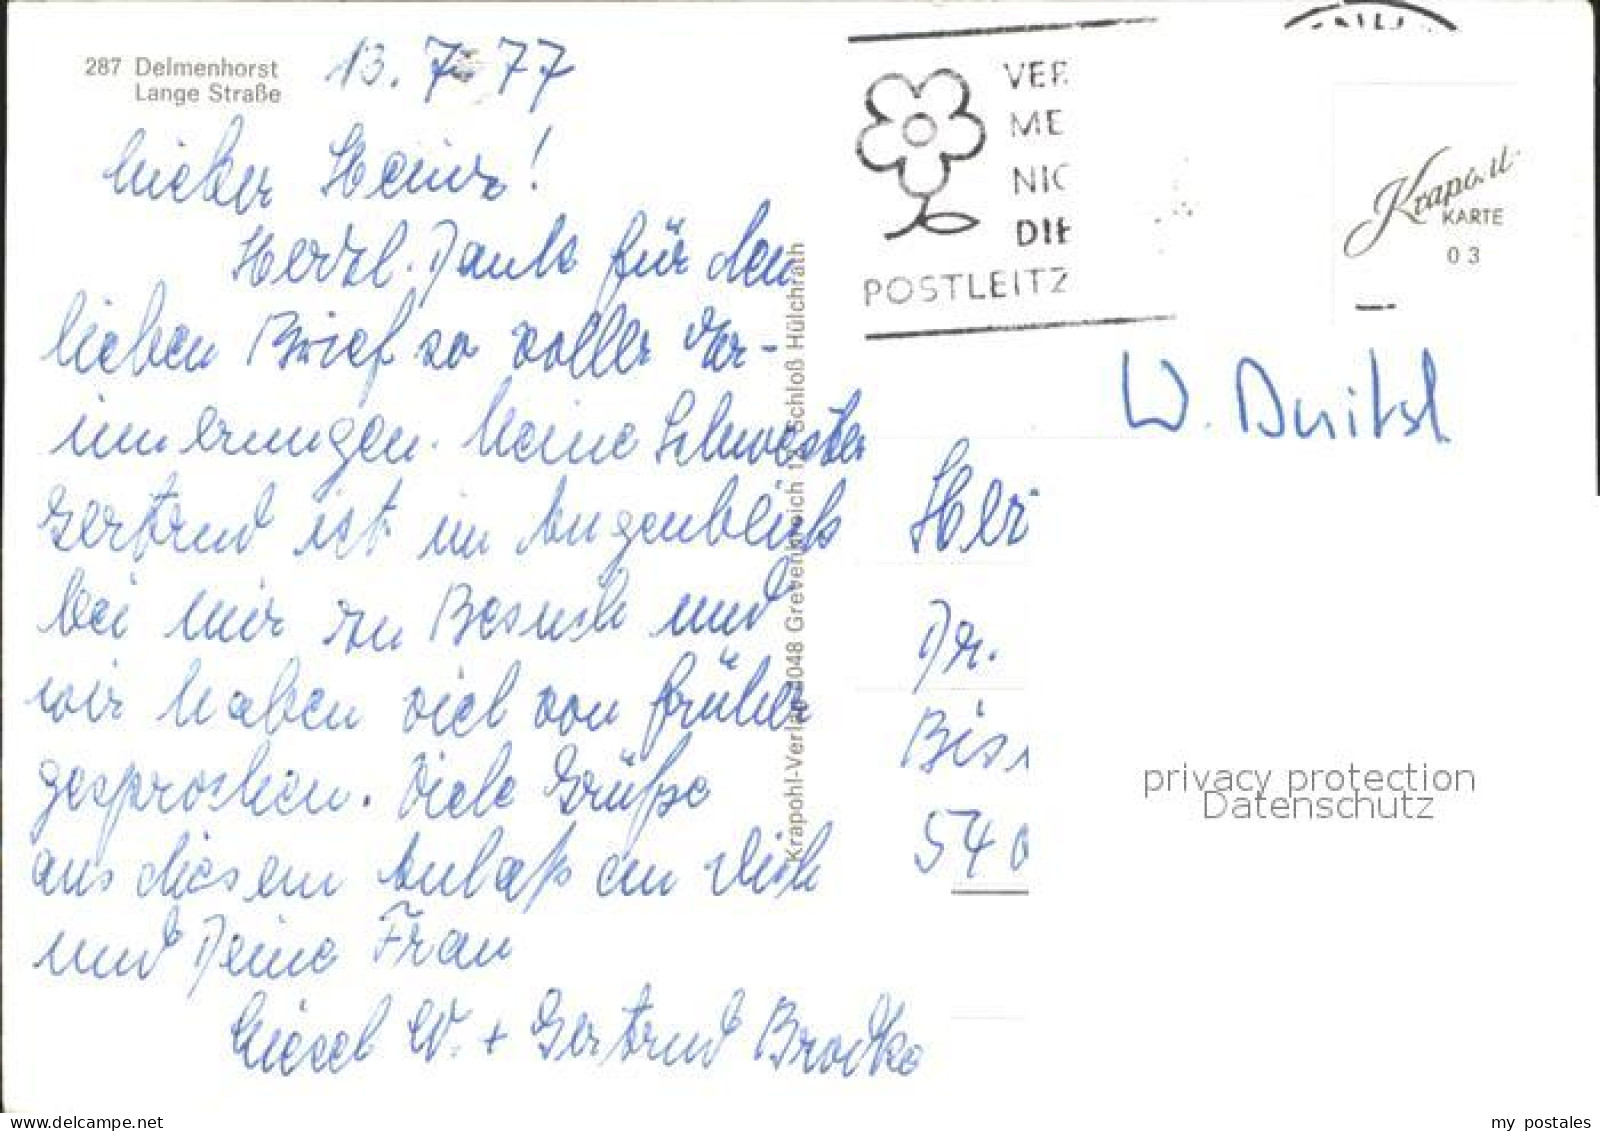 287 Delmenhorst
Lange Straße
13. 7. 77
Lieber Heinz!
Herzl. Dank für den
lieben Brief so voller Er-
innerungen. Meine Schwester
Gertrud ist im Augenblick
bei mir zu Besuch und
wir haben viel von früher
gesprochen. Viele Grüße
aus diesem Anlaß an Dich
und Deine Frau
Liesel W. + Gertrud Brodke
Krapohl-Verlag 4048 Grevenbroich 12 Schloß Hülchrath
VER
ME
NIC
DIE
POSTLEITZ
Krapohl
KARTE
03
W.
Her
Dr.
Bis
540
privacy protection
Datenschutz
www.delcampe.net
my_postales